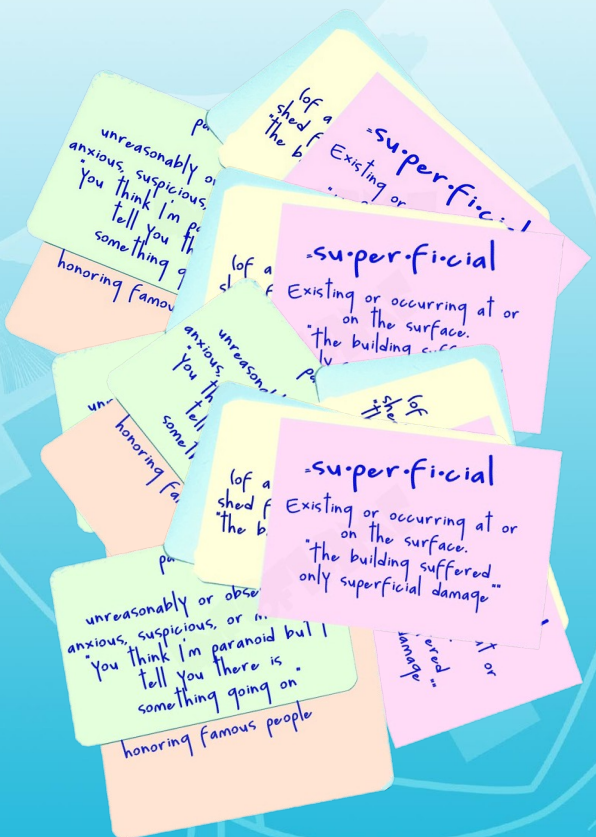 (of a
shed f
"the b
=su·per·fi·ci
Existing or
unreasonably o
anxious, suspicious,
"You think I'm pa
tell you th
something g
honoring famou
(of a
=su·per·fi·cial
Existing or occurring at or
on the surface.
"the building suff
unreasonabl
anxious,
"You th
tell
somet
honoring fa
(of
she
(of a
shed f
"the b
=su·per·fi·cial
Existing or occurring at or
on the surface.
"the building suffered
only superficial damage""
unreasonably or obse
anxious, suspicious, or m
"You think I'm paranoid but I
tell you there is
something going on"
honoring famous people
at or
ered
damage""